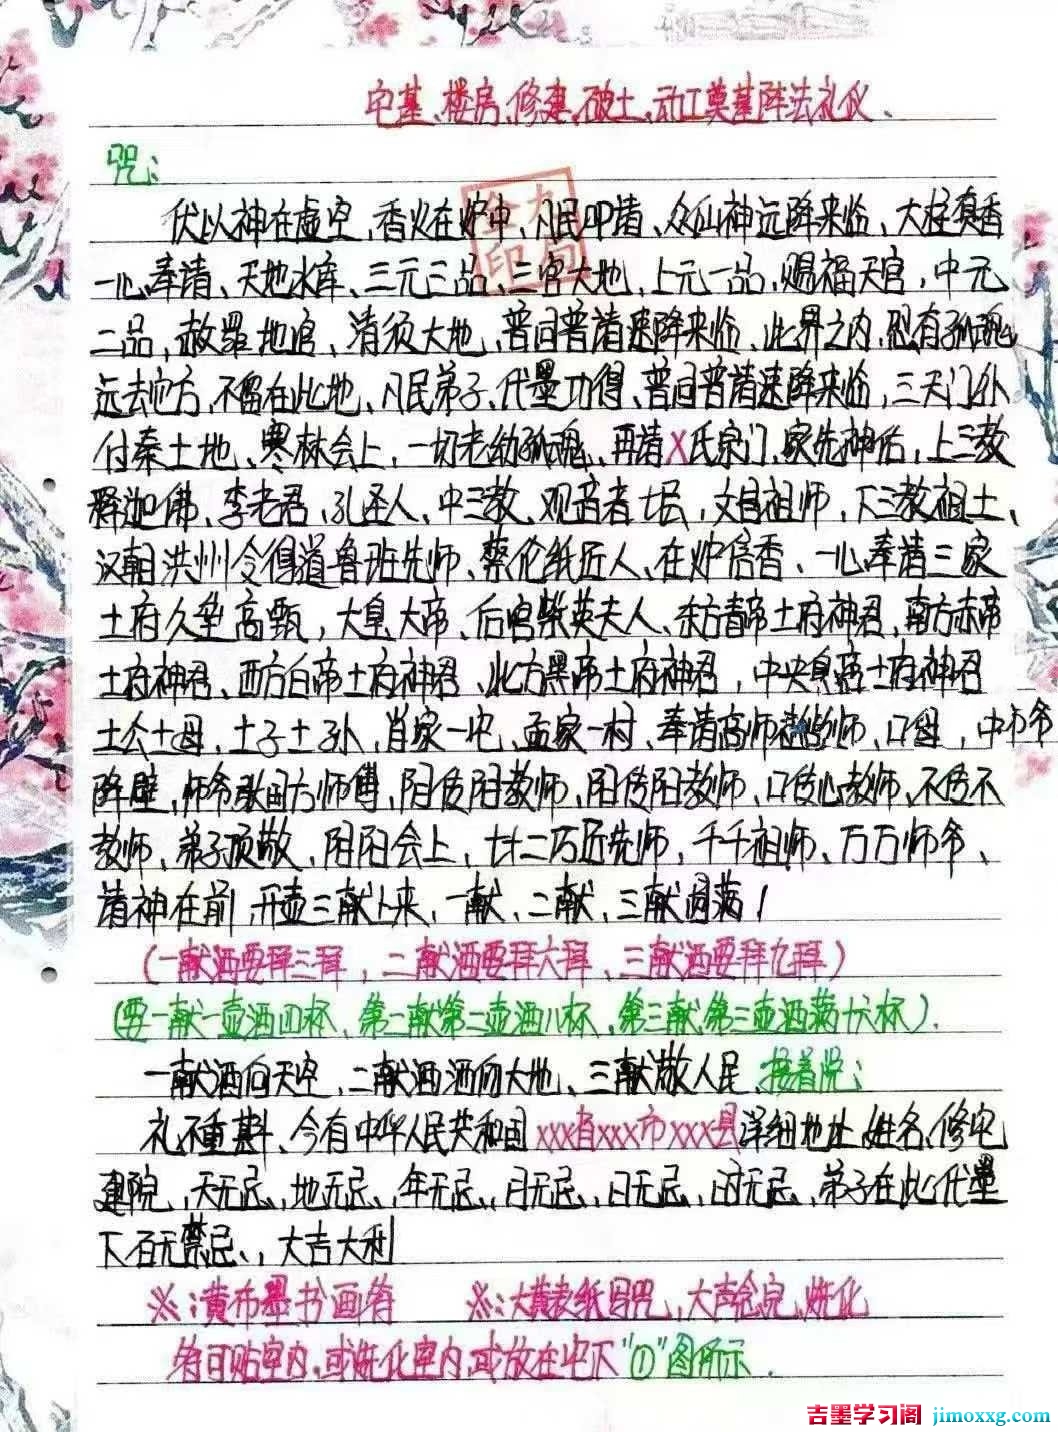 宅基、楼房、修建、破土、动工奠基阵法礼仪、
咒：
伏以神在虚空、香火在炉中、凡民叩请、众仙神远降来临、大柱真香
一心奉请、天地水库、三元三品、三官大地，上元一品，赐福天官，中元
二品，赦罪地官、清须大地、普同普请速降来临、此界之内、恐有孤魂
远去他方、不留在此地、凡民弟子、代墨功得、普同普请速降来临，三天门外
付秦土地、寒林会上，一切老幼孤魂、再请X氏宗门、家先神佑，上三教
释迦佛、李老君、孔圣人、中三教、观音老母，文昌祖师，下三教祖土、
汉朝洪州令得道鲁班先师、蔡伦纸匠人、在炉信香、一心奉请三家
土府久垒高甄，大皇大帝、后宫紫英夫人、东方青帝土府神君、南方赤帝
土府神君、西方白帝土府神君、北方黑帝土府神君，中央皇帝土府神君
土公土母，土子土孙，肖家一宅、孟家一村、奉请高师 师、口母，中 爷
降壁，师爷 田方师傅、阴传阳教师、阴传阳教师、口传心教师、不传不
教师、弟子顶敬，阴阳会上，七十二巧匠先师，千千祖师、万万师爷、
请神在前，开壶三献上来，一献、二献、三献圆满！
（一献酒要拜三拜，二献酒要拜六拜，三献酒要拜九拜）
（要一献一壶酒四杯、第二献第二壶酒八杯，第三献第三壶酒满十六杯）.
一献酒向天空，二献酒洒向大地、三献敬人民、接着说；
礼不重斟、今有中华人民共和国xxx省xxx市xxx县详细地址、姓名、修宅
建院，天无忌、地无忌、年无忌、月无忌、日无忌、时无忌、弟子在此代墨
下石无禁忌、，大吉大利
※：黄布墨书画符 ※：大黄表纸写咒，大声念完、烧化
符可贴室内，或烧化室内，或放在宅下“①”图所示．
全印
吉墨学习阁 jimoxxg.com